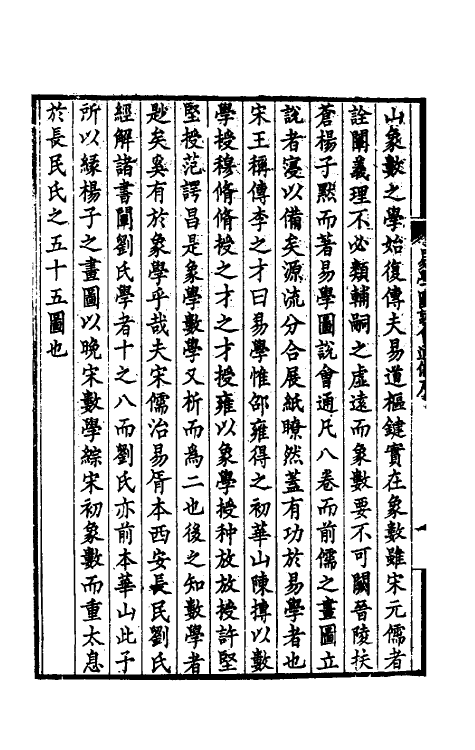 山象數之學始復傳夫易道樞鍵實在象數雖宋元儒者
詮闡義理不必類輔嗣之虛遠而象數要不可闕晉陵扶
蒼楊子黙而著易學圖說會通凡八卷而前儒之畫圖立
說者寖以備矣源流分合展紙瞭然蓋有功於易學者也
宋王稱傳李之才曰易學惟邵雍得之初華山陳摶以數
學授穆脩脩授之才之才授雍以象學授种放放授許堅
堅授范諤昌是象學數學又析而為二也後之知數學者
尠矣奚有於象學乎哉夫宋儒治易胥本西安長民劉氏
經解諸書闡劉氏學者十之八而劉氏亦前本華山此予
所以緣楊子之畫圖以晩宋數學綜宋初象數而重太息
於長民氏之五十五圖也